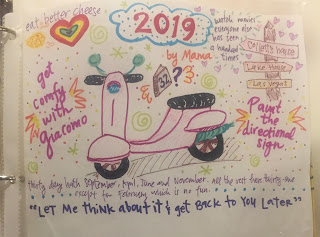 eat better cheese
2019
by Mama
watch movies
everyone else
has seen
a hundred
times
Lake House
Las Vegas
get
comfy
with
giacomo
32
?
Paint the
directional
sign
thirty days hath September, April, June and November. All the rest then thirty-one
except for February which is no fun.
"LET ME Think about it & get Back to You LateR"